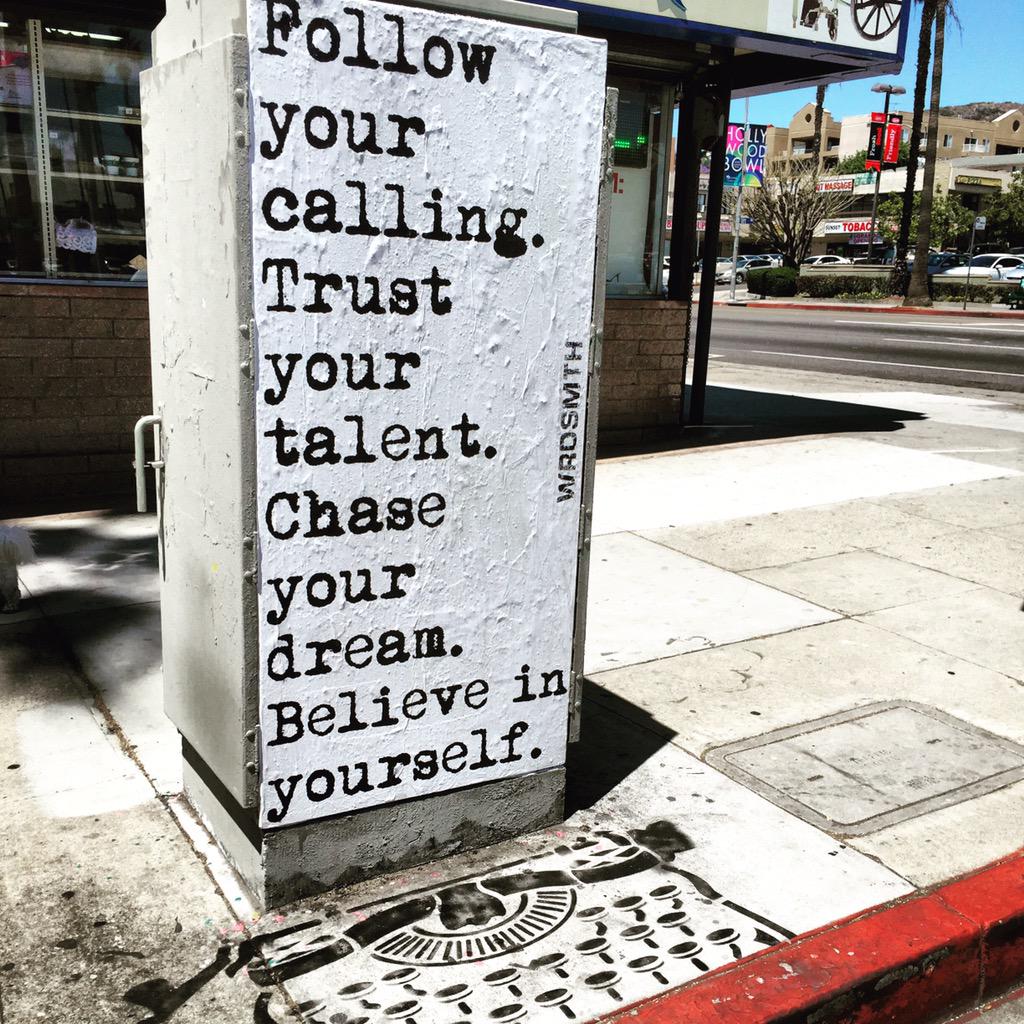 Follow
your
calling.
Trust
your
talent.
Chase
your
dream.
Believe in
yourself.
WRDSMTH
HOLLY
WOOD
BOWL
Fresh
Friendly
MASSAGE
SUNSET TOBAC